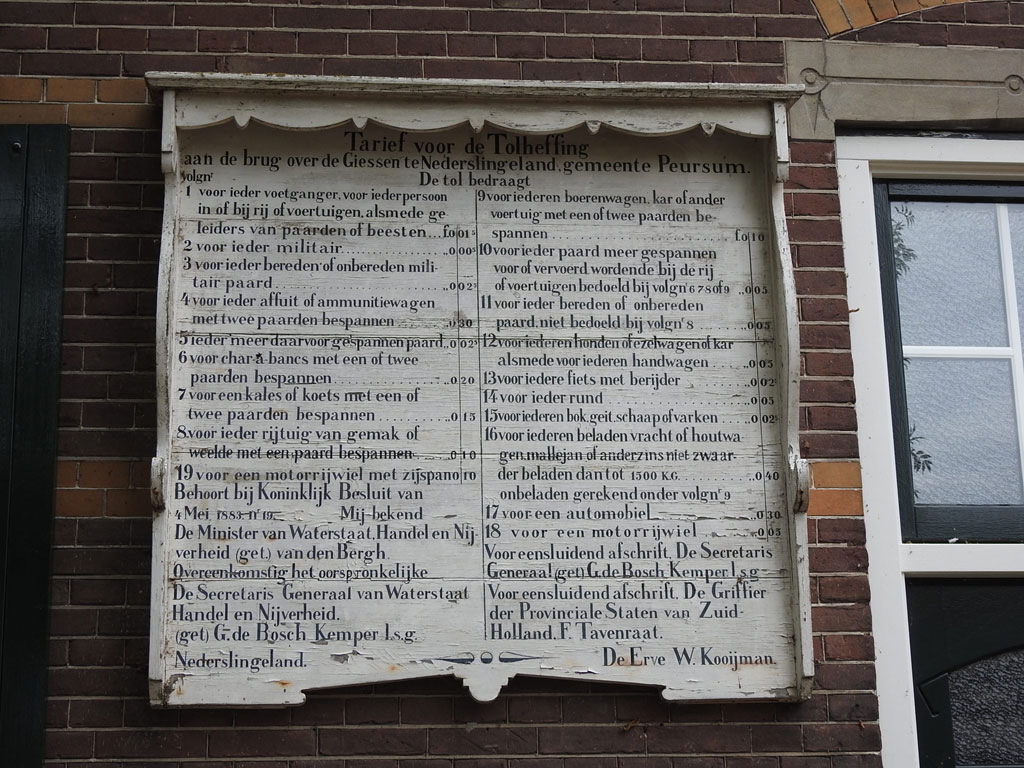 Tarief voor de Tolheffing
aan de brug over de Giessen te Nederslingeland, gemeente Peursum.
volgnr De tol bedraagt
1 voor ieder voetganger, voor ieder persoon
in of bij rij of voertuigen, alsmede ge
leiders van paarden of beesten... f.0 01⁵
2 voor ieder militair................ ..0 00⁵
3 voor ieder bereden of onbereden mili-
tair paard ........................ ..0 02⁵
4 voor ieder affuit of ammunitiewagen
met twee paarden bespannen ........ ..0 30
5 ieder meer daarvoor gespannen paard ..0 02⁵
6 voor char-à-bancs met een of twee
paarden bespannen ................. ..0 20
7 voor een kales of koets met een of
twee paarden bespannen ............ ..0 15
8 voor ieder rijtuig van gemak of
weelde met een paard bespannen ..0 10
19 voor een motorrijwiel met zijspan 0 10
Behoort bij Koninklijk Besluit van
4 Mei 1883. nº 19. Mij bekend
De Minister van Waterstaat, Handel en Nij-
verheid (get.) van den Bergh.
Overeenkomstig het oorspronkelijke
De Secretaris Generaal van Waterstaat
Handel en Nijverheid.
(get) G. de Bosch Kemper l.s.g.
Nederslingeland.
9 voor iederen boerenwagen, kar of ander
voertuig met een of twee paarden be-
spannen ........................ f.0 10
10 voor ieder paard meer gespannen
voor of vervoerd wordende bij de rij
of voertuigen bedoeld bij volgnr 6 7 8 of 9 ..0 05
11 voor ieder bereden of onbereden
paard, niet bedoeld bij volgnr 8 ..0 05
12 voor iederen honden of ezelwagen of kar
alsmede voor iederen handwagen ..0 05
13 voor iedere fiets met berijder ..0 02⁵
14 voor ieder rund ................ ..0 05
15 voor iederen bok, geit, schaap of varken ..0 02⁵
16 voor iederen beladen vracht of houtwa-
gen, mallejan of anderzins niet zwaar-
der beladen dan tot 1500 K.G. ..0 40
onbeladen gerekend onder volgnr 9
17 voor een automobiel ..0 30
18 voor een motorrijwiel ..0 05
Voor eensluidend afschrift. De Secretaris
Generaal (get) G. de Bosch Kemper l.s.g.
Voor eensluidend afschrift. De Griffier
der Provinciale Staten van Zuid-
Holland. F. Tavenraat.
De Erve W. Kooijman.